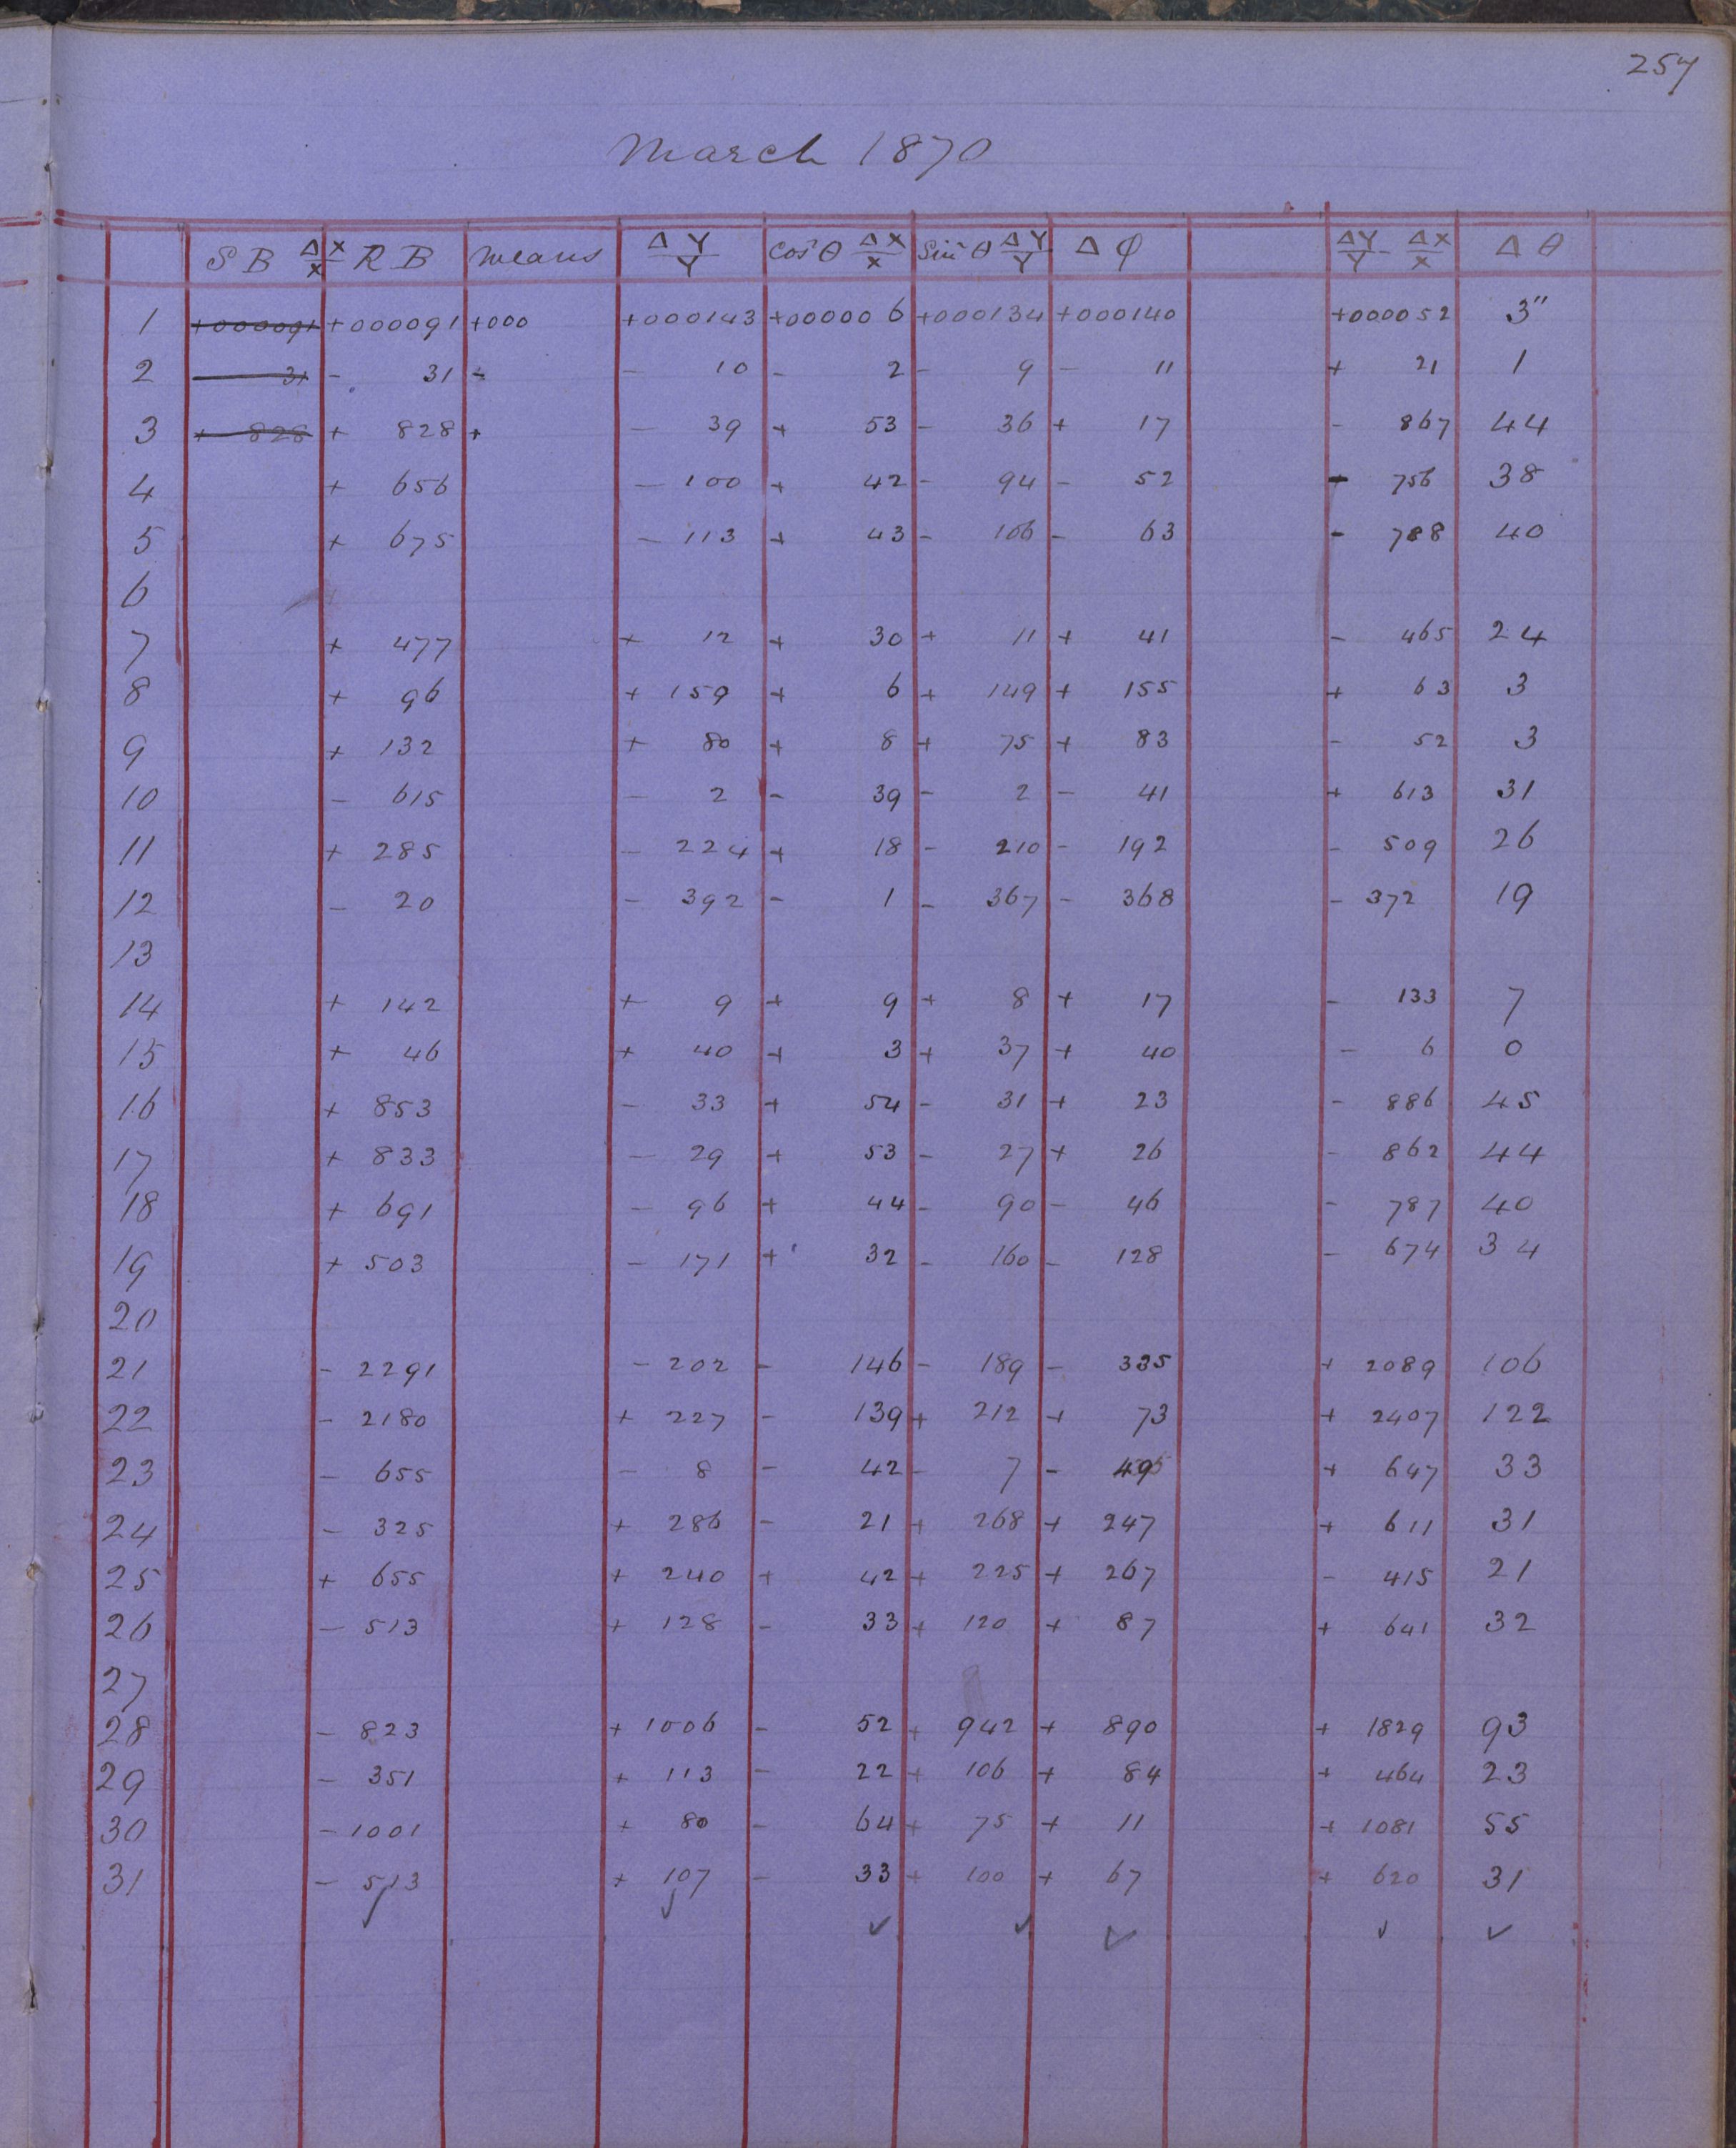 257
March 1870
SB ΔX/X RB means ΔY/Y cos²θ ΔX/X Sin²θ ΔY/Y Δ φ ΔY/Y - ΔX/X Δ θ
1 +000091 +000091 +000 +000143 +000006 +000134 +000140 +000052 3"
2 31 - 31 - - 10 - 2 - 9 - 11 + 21 1
3 + 828 + 828 + - 39 + 53 - 36 + 17 - 867 44
4 + 656 - 100 + 42 - 94 - 52 - 756 38
5 + 675 - 113 + 43 - 106 - 63 - 788 40
6
7 + 477 + 12 + 30 + 11 + 41 - 465 24
8 + 96 + 159 + 6 + 149 + 155 + 63 3
9 + 132 + 80 + 8 + 75 + 83 - 52 3
10 - 615 - 2 - 39 - 2 - 41 + 613 31
11 + 285 - 224 + 18 - 210 - 192 - 509 26
12 - 20 - 392 - 1 - 367 - 368 - 372 19
13
14 + 142 + 9 + 9 + 8 + 17 - 133 7
15 + 46 + 40 + 3 + 37 + 40 - 6 0
16 + 853 - 33 + 54 - 31 + 23 - 886 45
17 + 833 - 29 + 53 - 27 + 26 - 862 44
18 + 691 - 96 + 44 - 90 - 46 - 787 40
19 + 503 - 171 + 32 - 160 - 128 - 674 34
20
21 - 2291 - 202 - 146 - 189 - 335 + 2089 106
22 - 2180 + 227 - 139 + 212 + 73 + 2407 122
23 - 655 - 8 - 42 - 7 - + 647 33
24 - 325 + 286 - 21 + 268 + 247 + 611 31
25 + 655 + 240 + 42 + 225 + 267 - 415 21
26 - 513 + 128 - 33 + 120 + 87 + 641 32
27
28 - 823 + 1006 - 52 + 942 + 890 + 1829 93
29 - 351 + 113 - 22 + 106 + 84 + 464 23
30 - 1001 + 80 - 64 + 75 + 11 + 1081 55
31 - 513 + 107 - 33 + 100 + 67 + 620 31
✓ ✓ ✓ ✓ ✓ ✓ ✓